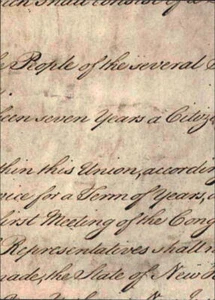 shall consist of
People of the several
been seven Years a Citize
thin this Union, accordin
vice for a Term of Years, a
first Meeting of the Cong
Representatives shall n
made, the State of New